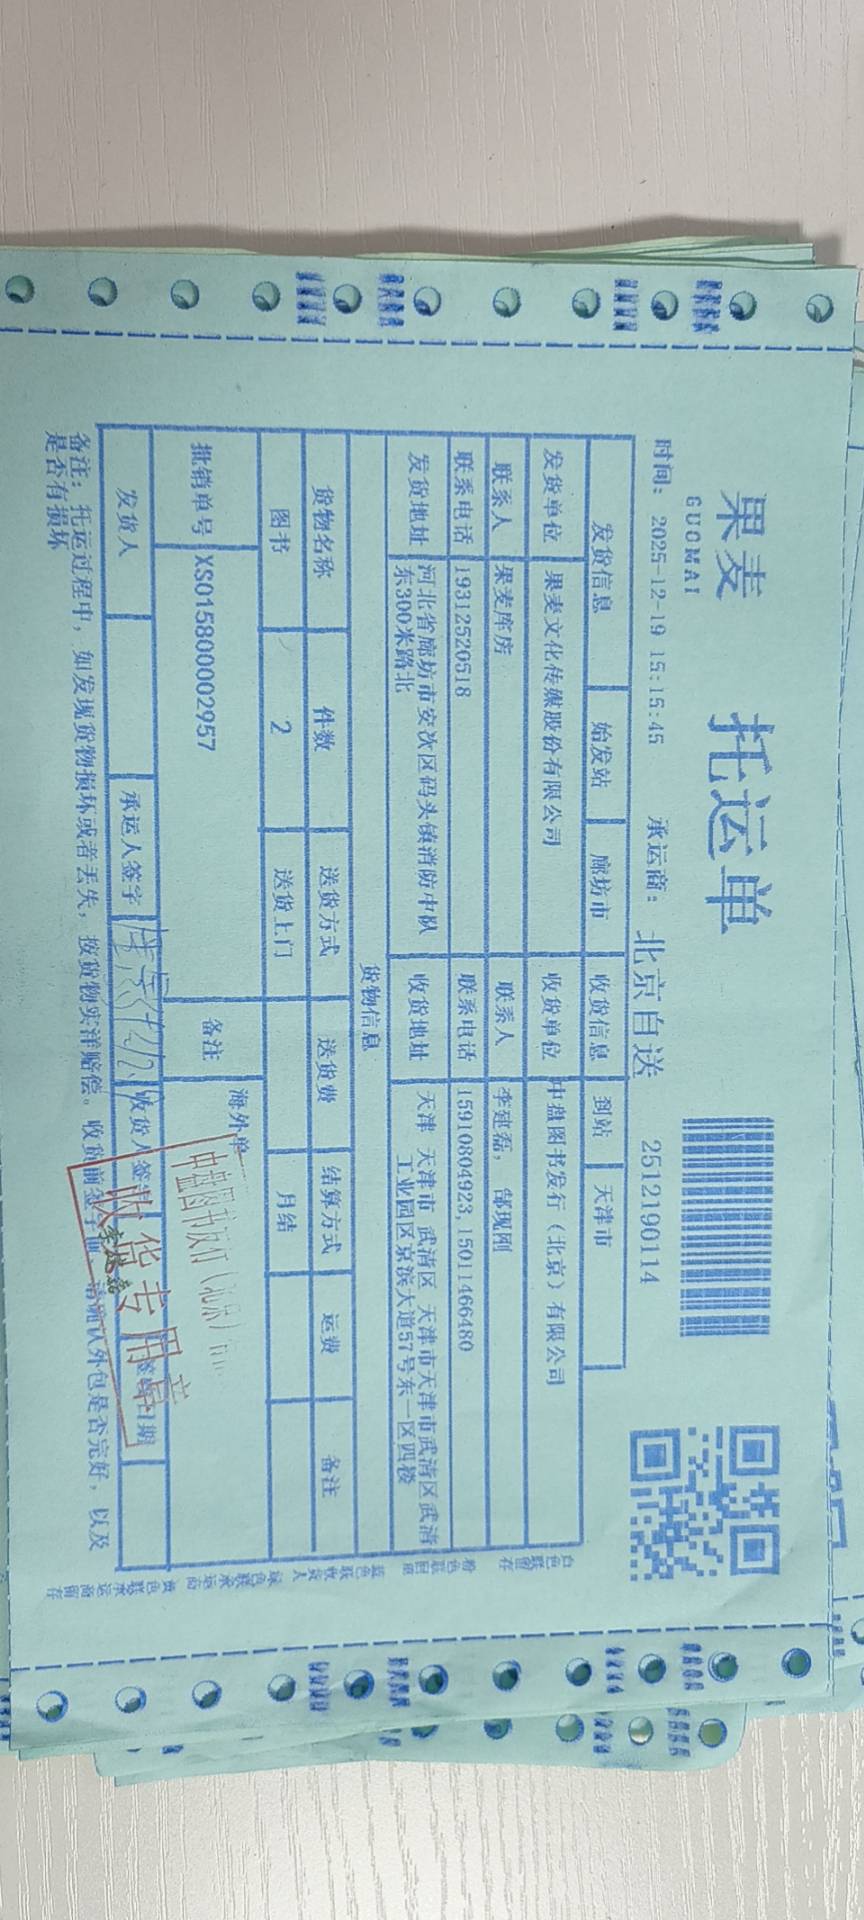 果麦
GUOMAI
托运单
时间: 2025-12-19 15:15:45 承运商: 北京自送 2512190114
发货信息 始发站 廊坊市 收货信息 到站 天津市
发货单位 果麦文化传媒股份有限公司 收货单位 中盘图书发行（北京）有限公司
联系人 果麦库房 联系人 李建磊, 郜现刚
联系电话 19312520518 联系电话 15910804923,15011466480
发货地址 河北省廊坊市安次区码头镇消防中队 收货地址 天津 天津市 武清区 天津市天津市武清区武清
东300米路北 工业园区京滨大道57号东一区四楼
货物信息
货物名称 件数 送货方式 送货费 结算方式 运费 备注
图书 2 送货上门 月结
批销单号 XS015800002957 备注 海外单
发货人 承运人签字 收货人签 签收日期
备注: 托运过程中, 如发现货物损坏或者丢失, 按货物实洋赔偿。收货前签字前, 请确认外包是否完好, 以及
是否有损坏
中盘图书发行（北京）有
收货专用章
李建磊
白色联留存 粉色联回单 蓝色联收货人 绿色联承运商 黄色联承运商留存